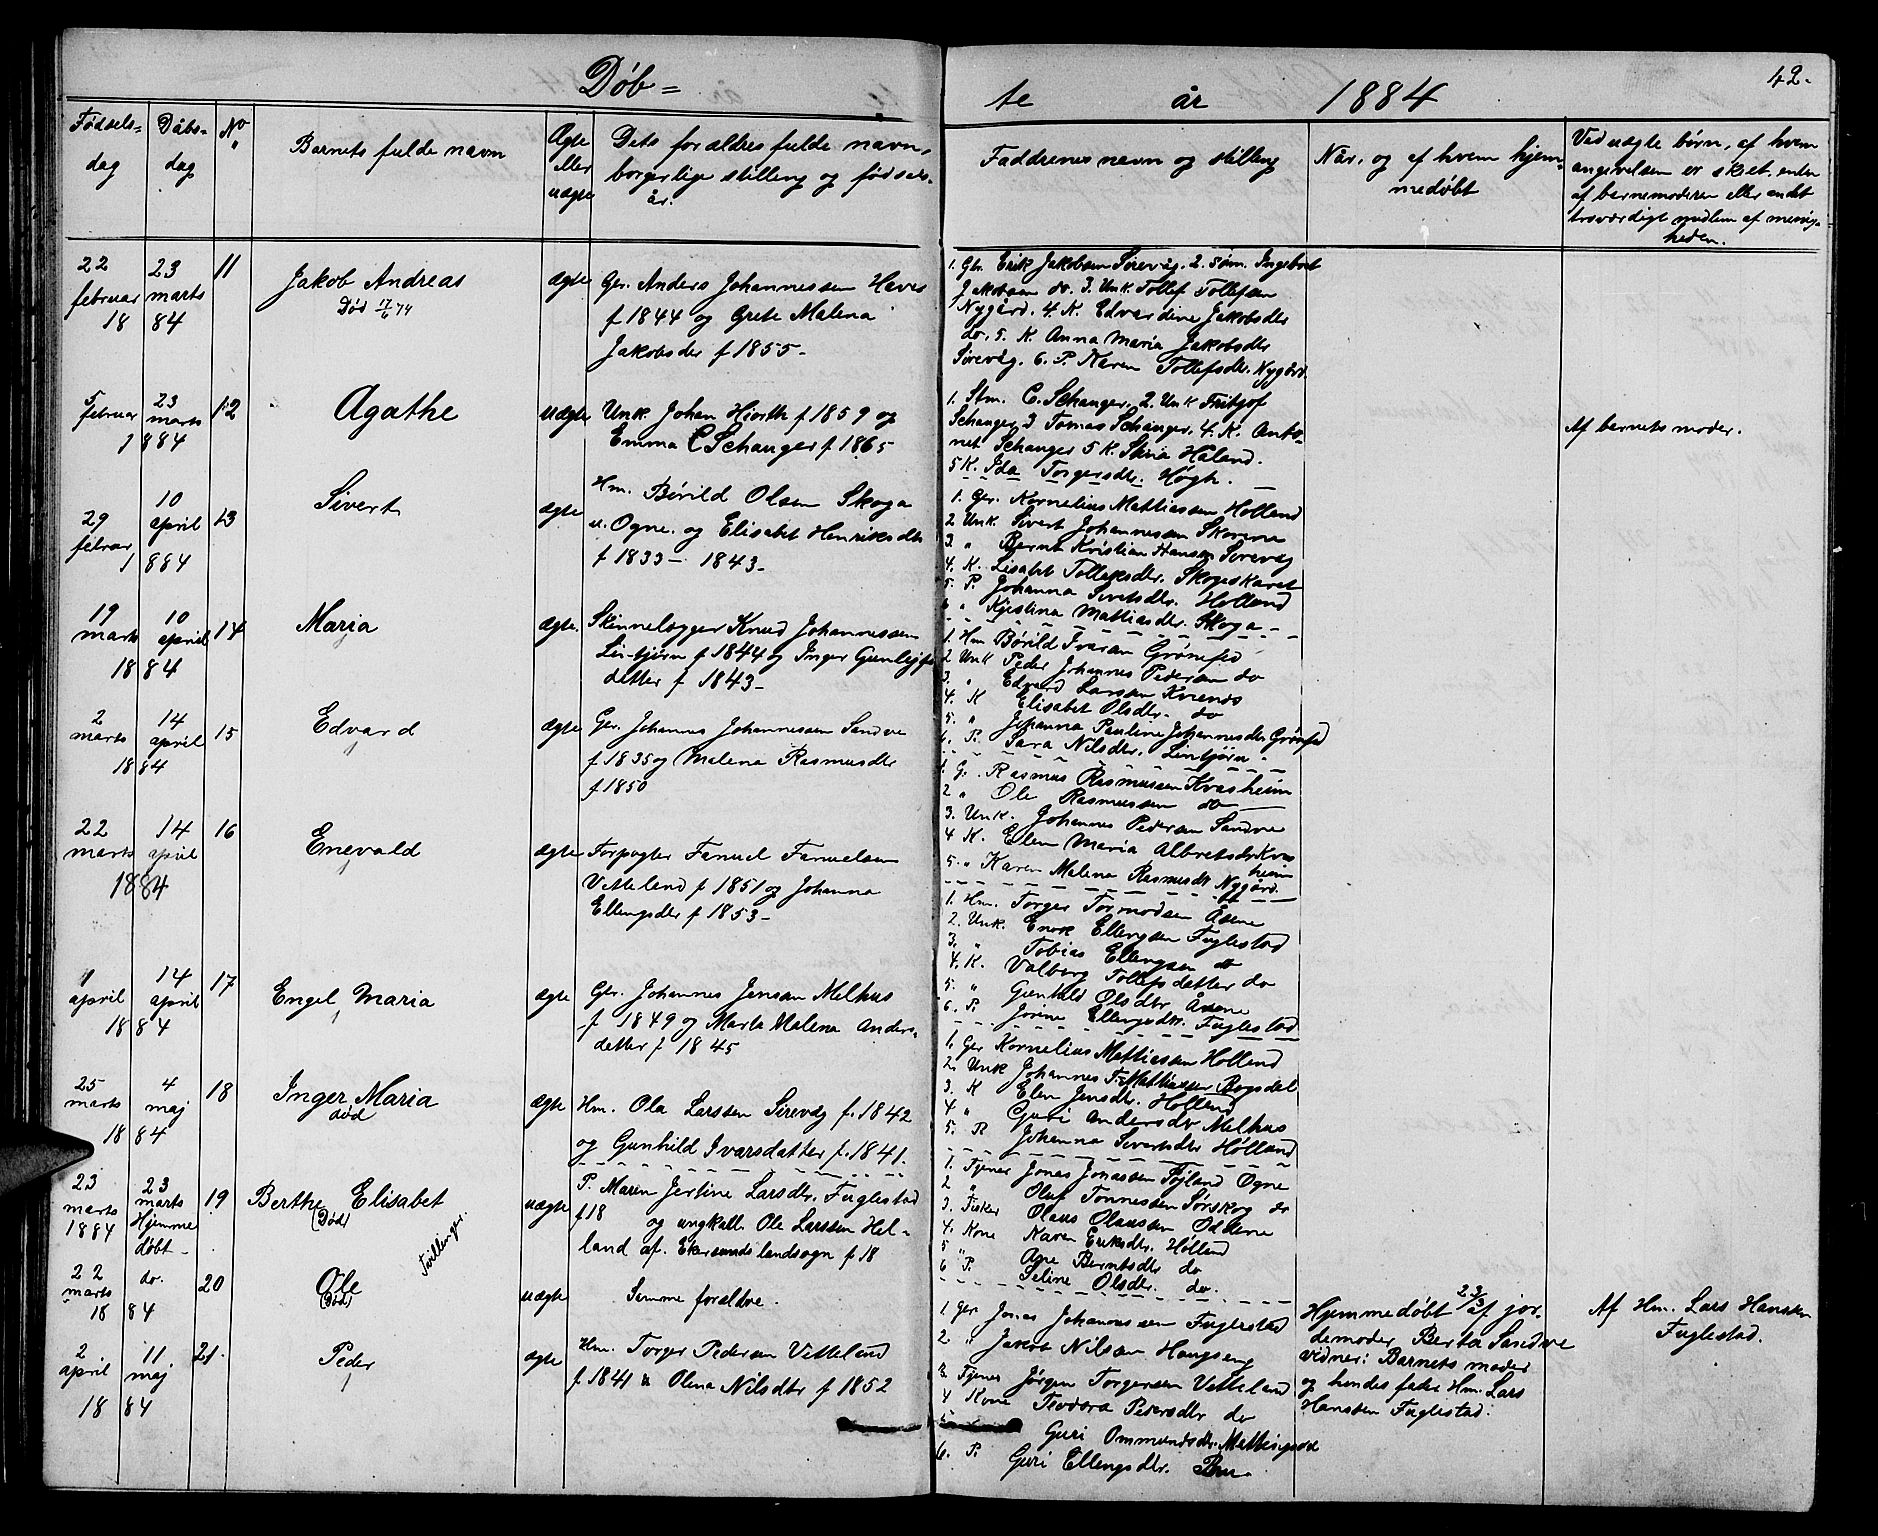 Døb=
te år 1884
42.
Fødsels=
dag
Dåbs=
dag
No
Barnets fulde navn
Ægte
eller
uægte
Dets forældres fulde navn,
borgerlige stilling og fødsels-
år.
Faddrenes navn og stilling
Når, og af hvem hjem-
medøbt
Ved uægte børn, af hvem
angivelsen er skeet, enten
af barnemoderen eller andet
troværdigt medlem af menig-
heden.
22
februar
18
23
marts
84
11
Jakob Andreas
Død 17/6 74
ægte
Gr. Anders Johannessen Haves
f 1844 og Grete Malena
Jakobsdr f 1855-
1. Gr. Erik Jakobsen Sirevåg. 2. Søm. Ingebret
Jakobsen do. 3. Unk. Tollef Tollefsen
Nygård. 4. K. Edvardine Jakobsdr
do. 5. K. Anna Maria Jakobsdr
Sirevåg. 6. P. Karen Tollefsdr. Nygård.
5
februar
1
23
marts
884
12
Agathe
uægte
Unk. Johan Hiorth f 1859 og
Emma C Schanger f 1865
1. Stm. C. Schanger. 2. Unk Fritjof
Schanger 3 Tomas Schanger. 4. K. Anto-
net Schanger 5 K. Stina Håland.
5 K. Ida Torgersdr. Høgh.
Af barnets moder.
29
februar
1
10
april
884
13
Sivert
ægte
Hm. Børild Olsen Skoga
u. Ogne. og Elisabet Henriksdtr
f 1833- 1843-
1. Gr. Kornelius Mattiassen Holland
2 Unk. Sivert Johannessen Skorene
3. " Bernt Kristian Hansen Sirevåg
4. K. Lisabet Tolleksdr. Skogeskaret
5. P. Johanna Sivertsdr. Holland
6 " Kjestina Mattiasdr. Skoga
19
marts
18
10
april
84
14
Maria
ægte.
Skindelægger Knud Johannessen
Lintjørn f 1844 og Inger Gunlejfs
detter f 1843-
1. Hm Børild Ivarsen Grønfed
2 Unk Peder Johannes Pedersen do
3. " Edvard Larsen Kvends
4. K Elisabet Olsdr. do
5. " Johanna Pauline Johannesdr Grønfed
6. P. Sara Nilsdr. Lintjørn.
2
marts
18
14
april
84
15
Edvard
ægte
Gr. Johannes Johannessen Sandve
f 1835 og Malena Rasmusdtr
f 1850
1. G. Rasmus Rasmussen Kvasheim
2 " Ole Rasmussen do
3. Unk. Johannes Pedersen Sandve
4 K. Elen Maria Albretsdr Kvas
heim
5. " Karen Malena Rasmusdr Nygård.
22
marts
18
14
april
84
16
Enevald
ægte
Forpagter Fanuel Fanuelsen
Vetteland f 1851 og Johanna
Ellingsdtr f 1853-
1. Hm. Torger Tormodsen Åsene
2. Unk. Enok Ellengsen Fuglestad
3. " Tobias Ellengsen do
4. K. Valborg Tollefsdetter do
5. " Gunhild Olsdtr Åsene
6. P. Jorine Ellengsdtr. Fuglestad
1
april
18
14
april
84
17
Engel Maria
ægte
Gr. Johannes Jensen Melhus
f 1849 og Marta Malena Anders-
detter f 1845
1. Gr Kornelius Mattiassen Holland
2. Unk Johannes F. Mattiassen Bogsdal
3. K Elen Jensdr. Holland
4 " Guri Andersdr Melhus
5. P. Johanna Sivertsdtr Holland
25
marts
18
4
maj
84
18
Inger Maria
død
ægte
Hm. Ola Larssen Sirevåg f. 1842
og Gunhild Ivarsdatter f. 1841.
1. Tjener Jonas Jonassen Tøjland Ogne
2 " Oluf Tønnessen Sørskog do
3. Fisker Olaus Olaussen Odderne
4. Kone Karen Eriksdtr. Holland
5 " Ogne Berntsdtr do
6 P. Seline Olsdtr. do.
23
marts
1884
23
marts
Hjemme
døbt-
19
Berthe Elisabet
(Død)
Tvillinger.
uægte
P. Maren Jertine Larsdtr. Fuglestad
f.18 og ungkall. Ole Larssen Hel-
land af. Ekersunds landsogn f 18
22
marts
18
do.
84
20
Ole
(Død)
uægte
Samme forældre.
1. Gr. Jonas Johannessen Fuglestad
2. " Jakob Nilsen Haugseng
3. Tjener Jørgen Torgersen Vetteland
4 Kone Teodora Pedersdtr do
5 Guri Ommundsdtr. Mattingsdal
6. P. Guri Ellengsdtr. Bru
Hjemmedøbt 23/3 af jor-
demoder Berta Sandve
vidner: Barnets moder
og hendes fader Hm. Lars
Hanssen Fuglestad.
Af Hm. Lars Hanssen
Fuglestad.
2
april
18
11
maj
84
21.
Peder
ægte
Hm. Torger Pedersen Vetteland
f 1841 & Olena Nilsdtr f 1852